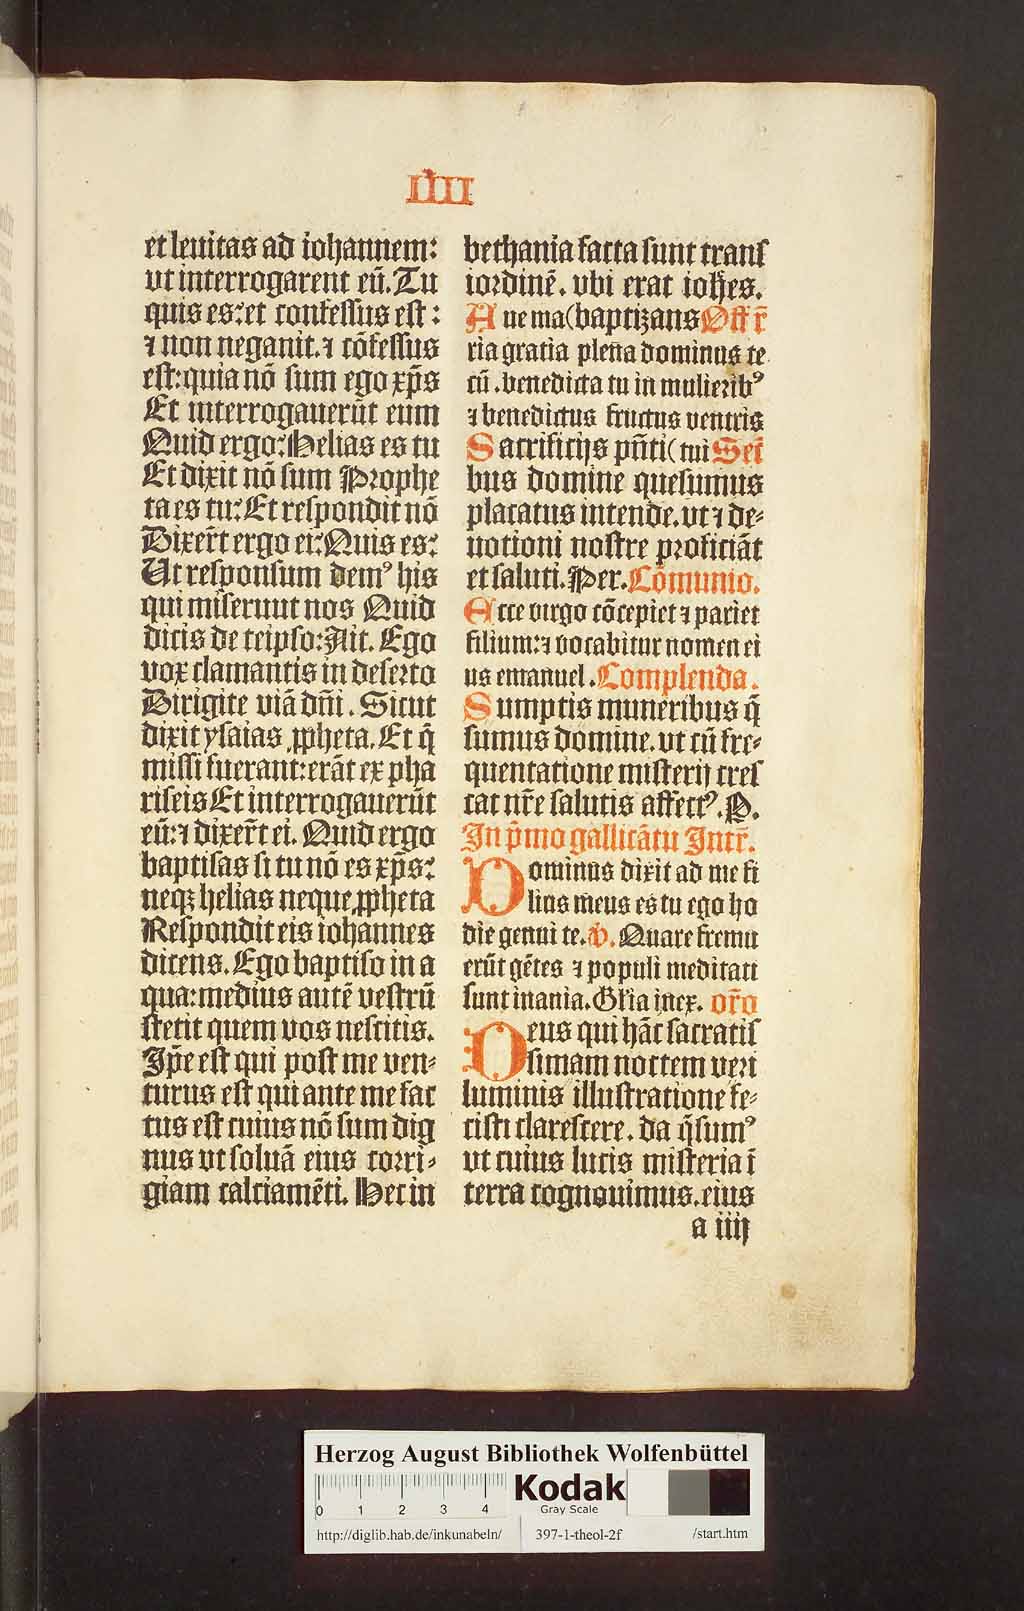 IIII
et leuitas ad iohannem:
vt interrogarent eũ. Tu
quis es: et confessus est:
⁊ non neganit. ⁊ cõfessus
est: quia nõ sum ego xp̃s
Et interrogauerũt eum
Quid ergo: Helias es tu
Et dixit nõ sum Prophe
ta es tu: Et respondit nõ
Dixer̃t ergo ei: Quis es:
Ut responsum demꝰ his
qui miserunt nos Quid
dicis de teipso: Ait. Ego
vox clamantis in deserto
Dirigite viã dñi. Sicut
dixit ysaias ꝓpheta. Et q̃
missi fuerant: erãt ex pha
riseis Et interrogauerũt
eũ: ⁊ dixer̃t ei. Quid ergo
baptisas si tu nõ es xp̃s:
neqꝫ helias neque ꝓpheta
Respondit eis iohannes
dicens. Ego baptiso in a
qua: medius autẽ vestrũ
stetit quem vos nescitis.
Ip̃e est qui post me ven⸗
turus est qui ante me fac
tus est cuius nõ sum dig
nus vt soluã eius corri⸗
giam calciamẽti. Hec in
bethania facta sunt trans
iordinẽ. vbi erat ioh̃es.
Aue ma(baptizans Off r̃
ria gratia plena dominus te
cũ. benedicta tu in mulieribꝰ
⁊ benedictus fructus ventris
Sacrificijs pñti( tui Sec̃
bus domine quesumus
placatus intende. vt ⁊ de⸗
uotioni nostre proficiãt
et saluti. Per. Cõmunio.
Ecce virgo cõcepiet ⁊ pariet
filium: ⁊ vocabitur nomen ei
us emanuel. Complenda.
Sumptis muneribus q̃
sumus domine. vt cũ fre⸗
quentatione misterij cres
cat nr̃e salutis affectꝰ. P.
In p̃mo gallicãtu Intr̃.
Dominus dixit ad me fi
lius meus es tu ego ho
die genui te. v̾. Quare fremu
erũt gẽtes ⁊ populi meditati
sunt inania. Gl̃ia inex. or̃o
Deus qui hãc sacratis
simam noctem veri
luminis illustratione fe⸗
cisti clarescere. da q̃sumꝰ
vt cuius lucis misteria ĩ
terra cognouimus. eius
a iiij
Herzog August Bibliothek Wolfenbüttel
0 1 2 3 4
Kodak
Gray Scale
http://diglib.hab.de/inkunabeln/ 397-1-theol-2f /start.htm